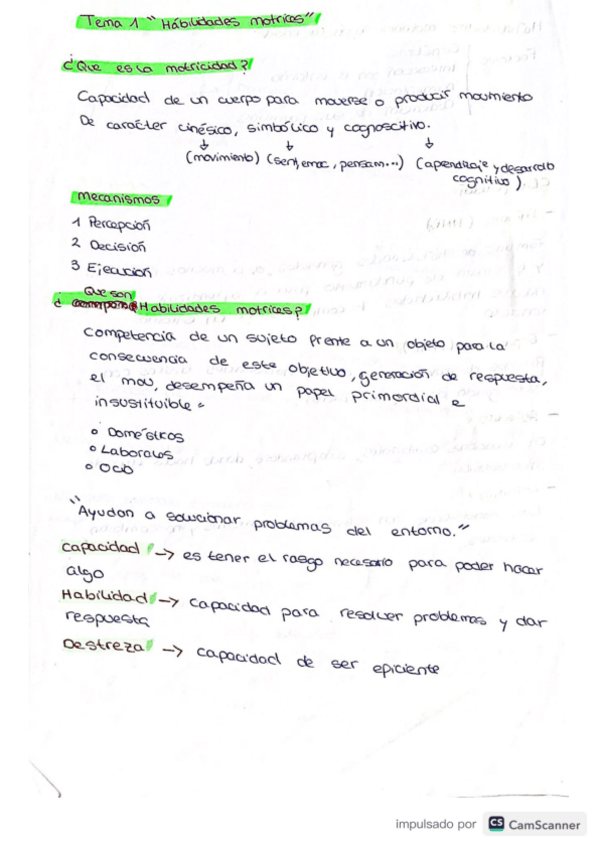 Tema 1 "Hábilidades motrices"
¿Que es la motricidad?
Capacidad de un cuerpo para moverse o producir movimiento
De carácter cinésico, simbólico y cognoscitivo.
(movimiento) (sent, emoc, pensam...) (aprendizaje y desarrollo
cognitivo)
mecanismos
1 Percepción
2 Decisión
3 Ejecución
Que son
¿ Habilidades motrices?
Competencia de un sujeto frente a un objeto para la
consecuencia de este objetivo, generación de respuesta,
el mov, desempeña un papel primordial e
insustituible.
Domésticos
Laborales
Ocio
"Ayudan a solucionar problemas del entorno."
Capacidad -> es tener el rasgo necesario para poder hacer
algo
Habilidad -> capacidad para resolver problemas y dar
respuesta
Destreza -> capacidad de ser eficiente
impulsado por CS CamScanner